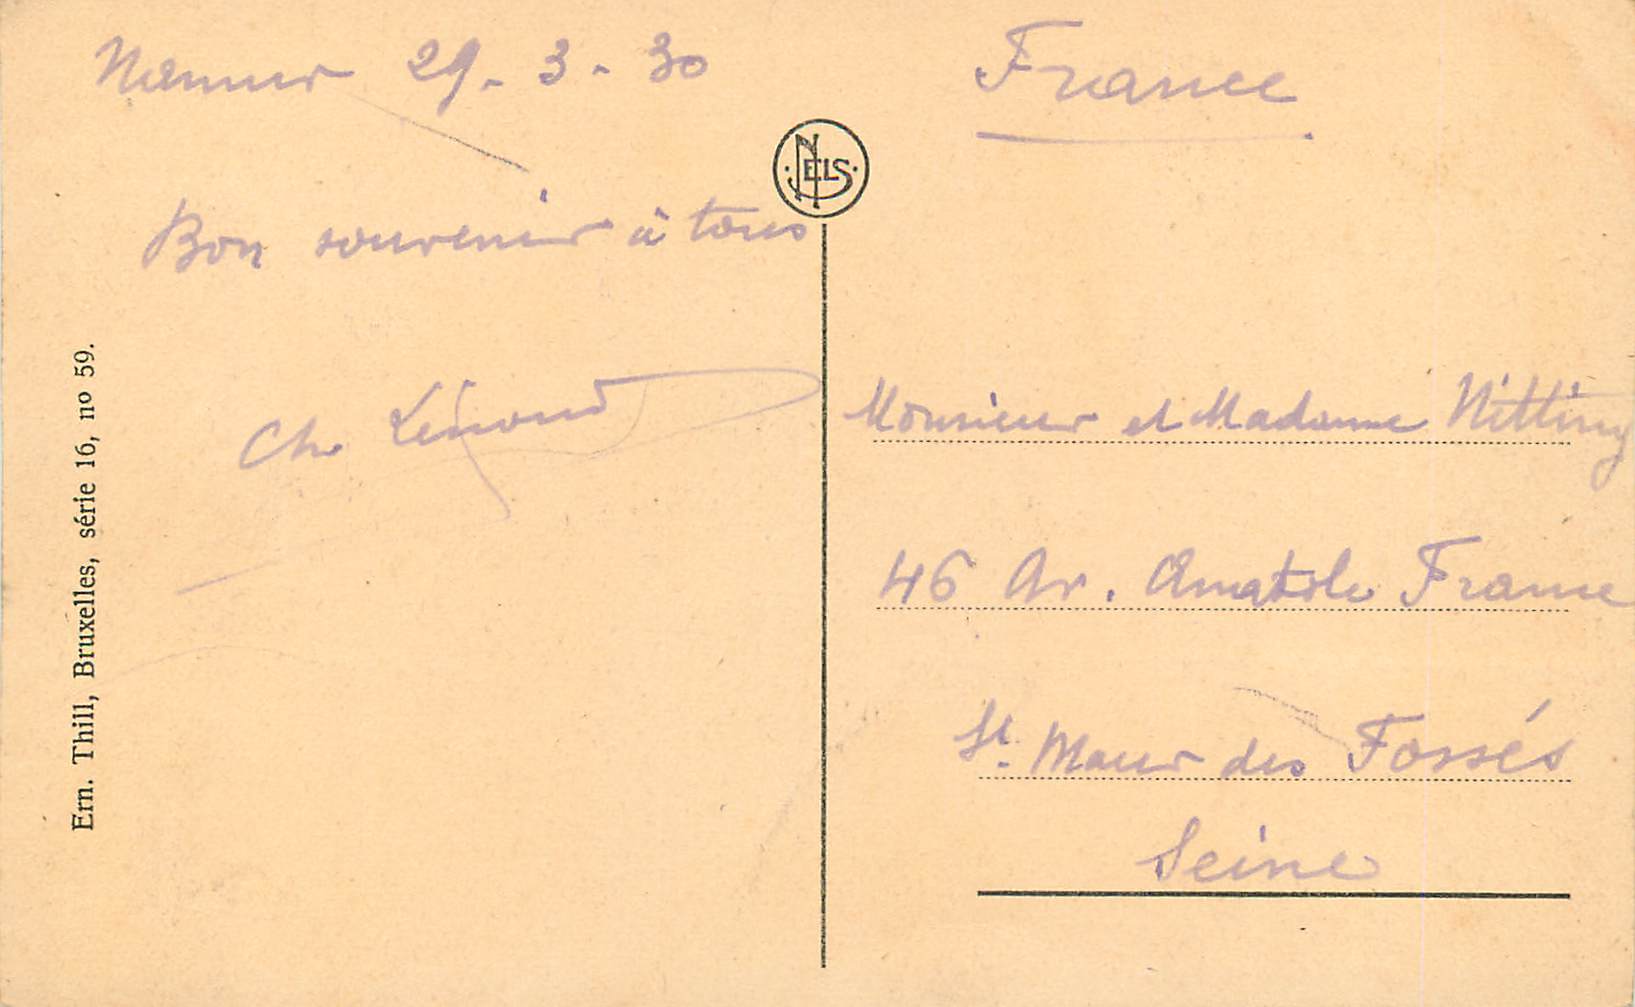 Namur 29-3-30
Bon souvenir à tous
Ch
Ern. Thill, Bruxelles, série 16, nº 59.
NELS
France
Monsieur et Madame Nitting
46 Av. Anatole France
St. Maur des Fossés
Seine